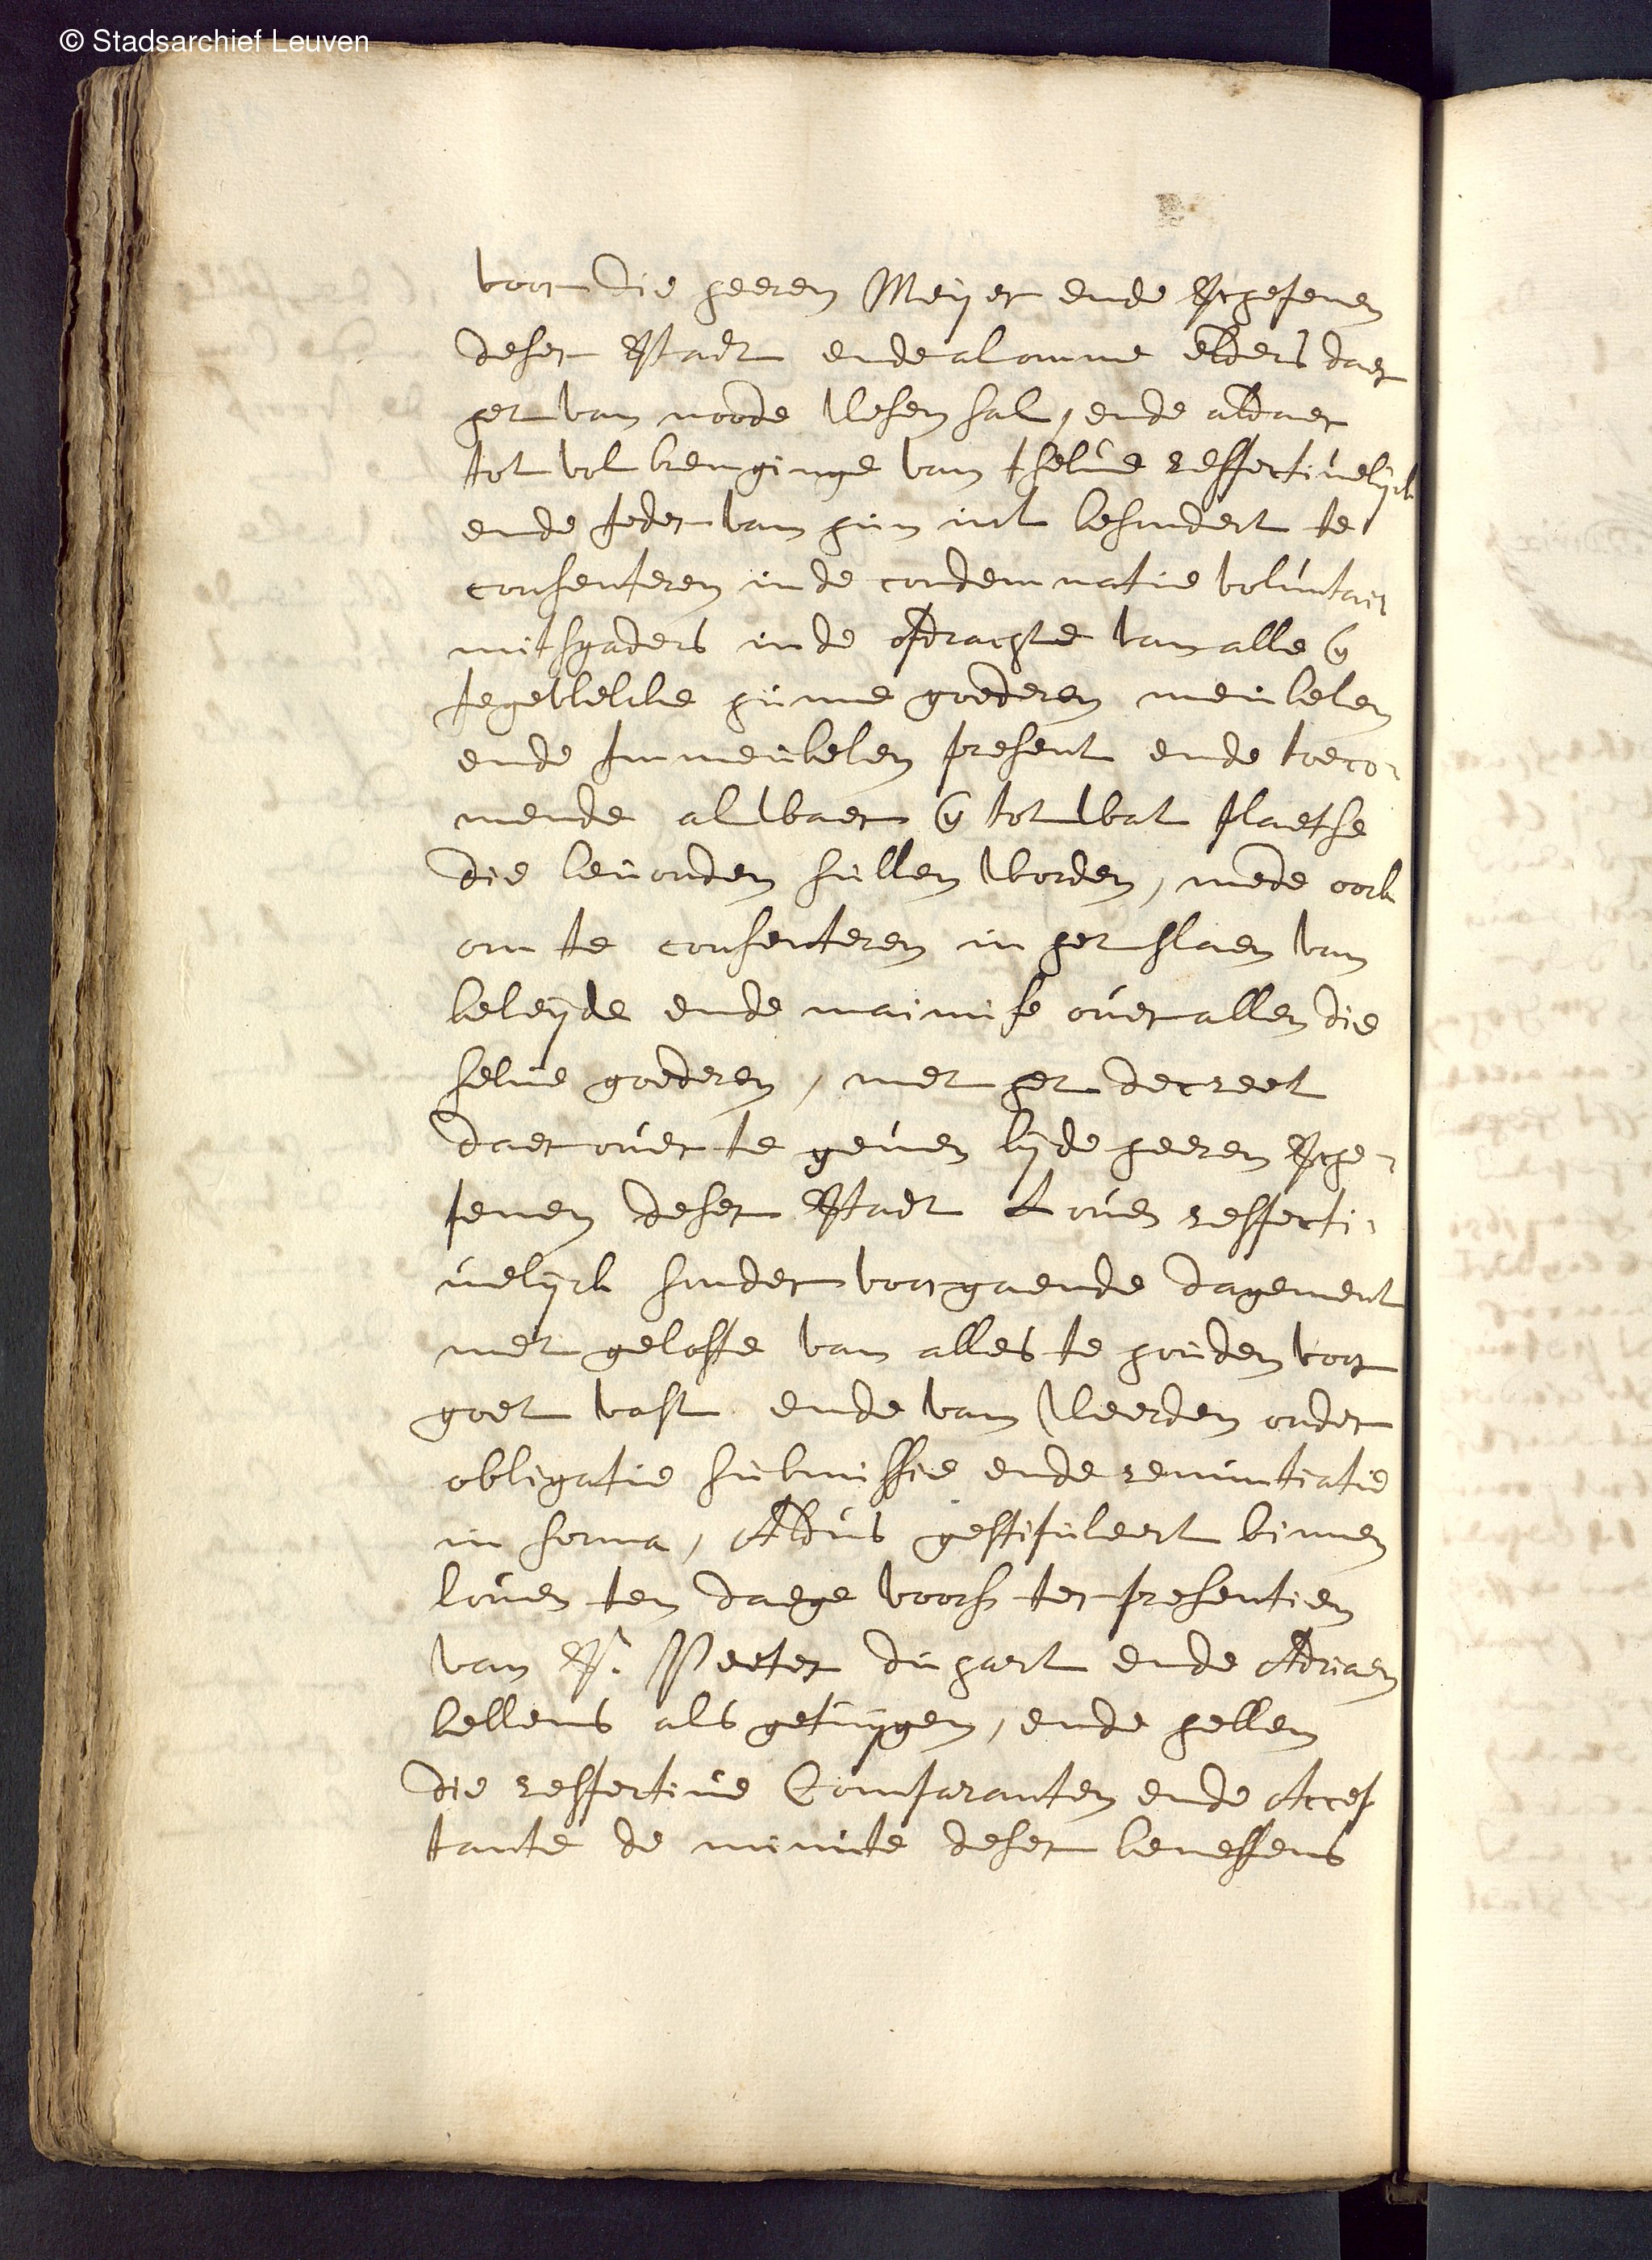 © Stadsarchief Leuven
voor die heeren Meijer ende Schepenen
deser Stadt ende alomme elders daer
het van noode wesen sal, ende aldaer
tot vol brenginge van tselve respectivelijck
ende jeder van hun int besundert te
consenteren inde condemnatie voluntair
mitsgaders inde opdrachte van alle &
jegewelcke hunne goederen meubelen
ende Immeubelen present ende toeco-
mende alwaer & tot wat plaetse
die bevonden sullen worden, mede oock
om te consenteren in het slaen van
beleyde ende mainmise over allen die
selve goederen, met het decreet
daer over te geven by de heeren Sche-
penen deser Stadt Loven respecti-
velijck sonder voorgaende dagement
met gelofte van alles te houden voor
goet vast ende van weerden onder
obligatie submissie ende renuntiatie
in forma, Aldus gestipuleert binnen
loven ten daege voors ter presentien
van Sr. Peeter du hart ende Adriaen
bellens als getuygen, ende hebben
die respective Comparanten ende Accep
tante de minute deser beneffens